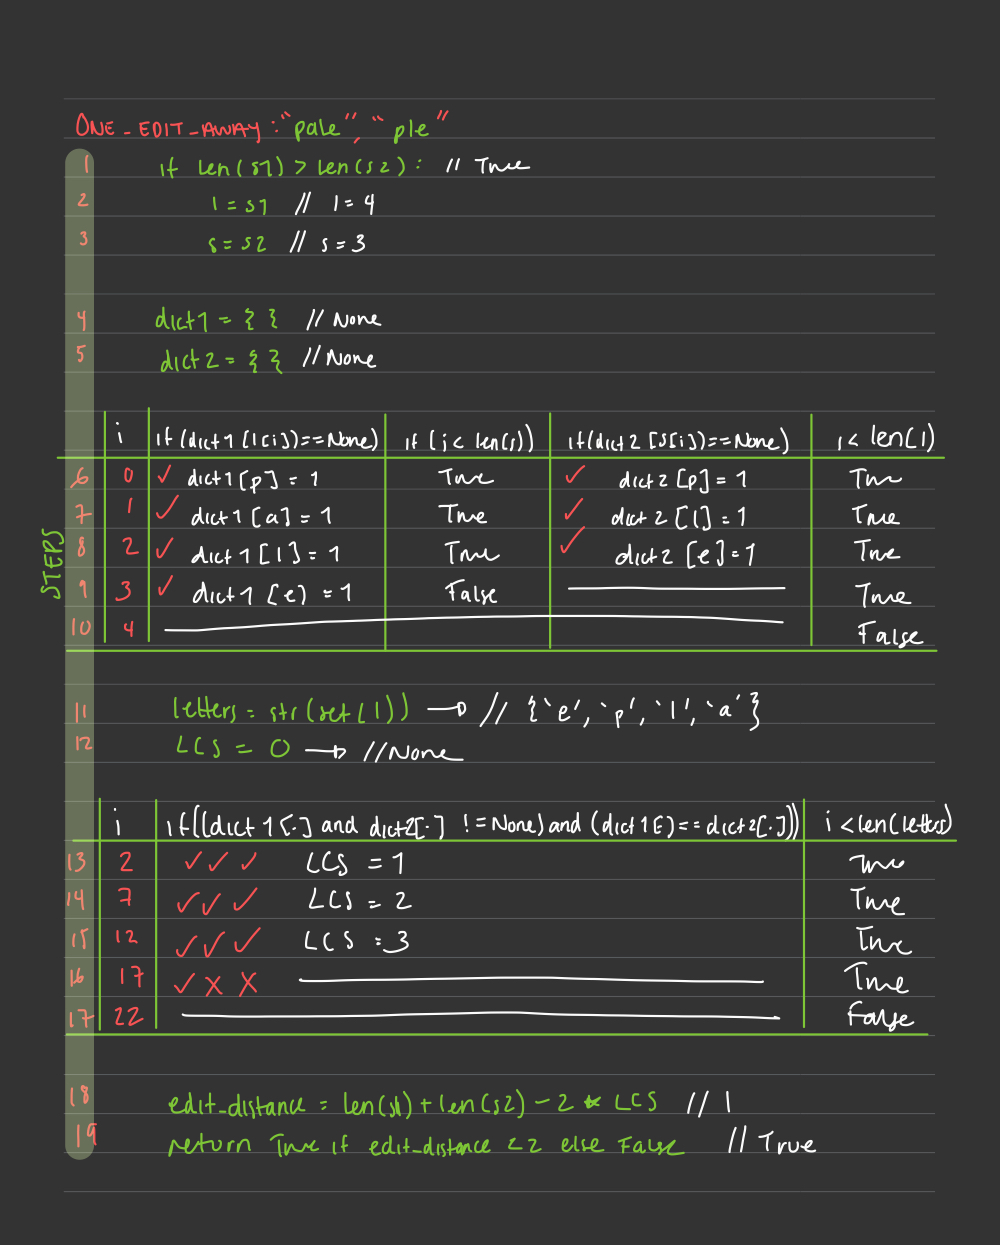 ONE_EDIT_AWAY : "pale", "ple"
1 if len(s1) > len(s2): // True
2 l = s1 // l = 4
3 s = s2 // s = 3
4 dict1 = { } // None
5 dict2 = { } // None
i if (dict1 [l[i]) == None) if (i < len(s)) if (dict2 [s[i]) == None) i < len(l)
STEPS
6 0 ✓ dict1 [p] = 1 True ✓ dict2 [p] = 1 True
7 1 ✓ dict1 [a] = 1 True ✓ dict2 [l] = 1 True
8 2 ✓ dict1 [l] = 1 True ✓ dict2 [e] = 1 True
9 3 ✓ dict1 [e] = 1 False True
10 4 False
11 letters = str(set(l)) → // {'e', 'p', 'l', 'a'}
12 LCS = 0 → // None
i if((dict1[.] and dict2[.] != None) and (dict1[.]) == dict2[.])) i < len(letters)
13 2 ✓ ✓ ✓ LCS = 1 True
14 7 ✓ ✓ ✓ LCS = 2 True
15 12 ✓ ✓ ✓ LCS = 3 True
16 17 ✓ X X True
17 22 False
18 edit_distance = len(s1) + len(s2) - 2 * LCS // 1
19 return True if edit_distance < 2 else False // True